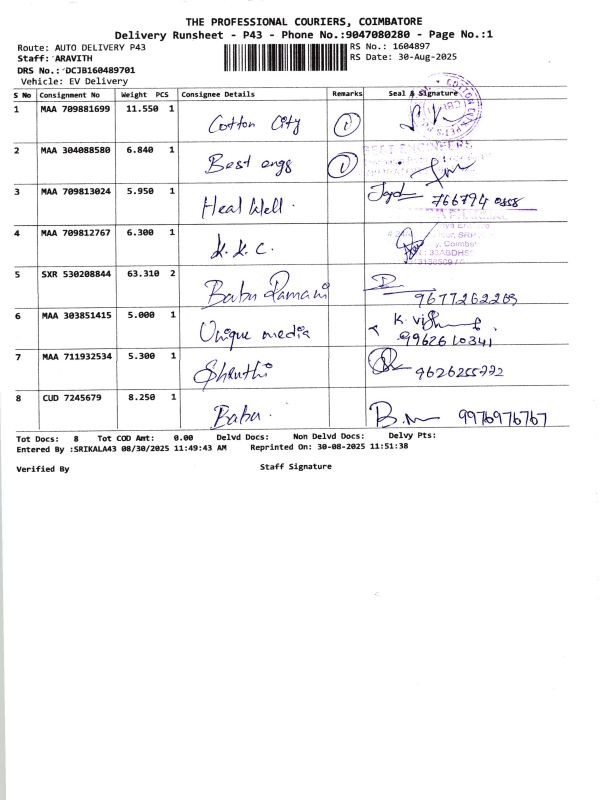 THE PROFESSIONAL COURIERS, COIMBATORE
Delivery Runsheet - P43 - Phone No.:9047080280 - Page No.:1
Route: AUTO DELIVERY P43 RS No.: 1604897
Staff: ARAVITH RS Date: 30-Aug-2025
DRS No.: DCJB160489701
Vehicle: EV Delivery
S No Consignment No Weight PCS Consignee Details Remarks Seal & Signature
1 MAA 709881699 11.550 1 Cotton City 1
2 MAA 304088580 6.840 1 Best engs 1
BEST ENGINEERS
3 MAA 709813024 5.950 1 Heal Well. 766794 0558
4 MAA 709812767 6.300 1 K. K. C.
5 SXR 530208844 63.310 2 Babu Ramani 9677262269
6 MAA 303851415 5.000 1 Unique media K. Vishnu 9962610341
7 MAA 711932534 5.300 1 Shruthi 9626255772
8 CUD 7245679 8.250 1 Babu. B.M 9976976767
Tot Docs: 8 Tot COD Amt: 0.00 Delvd Docs: Non Delvd Docs: Delvy Pts:
Entered By :SRIKALA43 08/30/2025 11:49:43 AM Reprinted On: 30-08-2025 11:51:38
Verified By Staff Signature